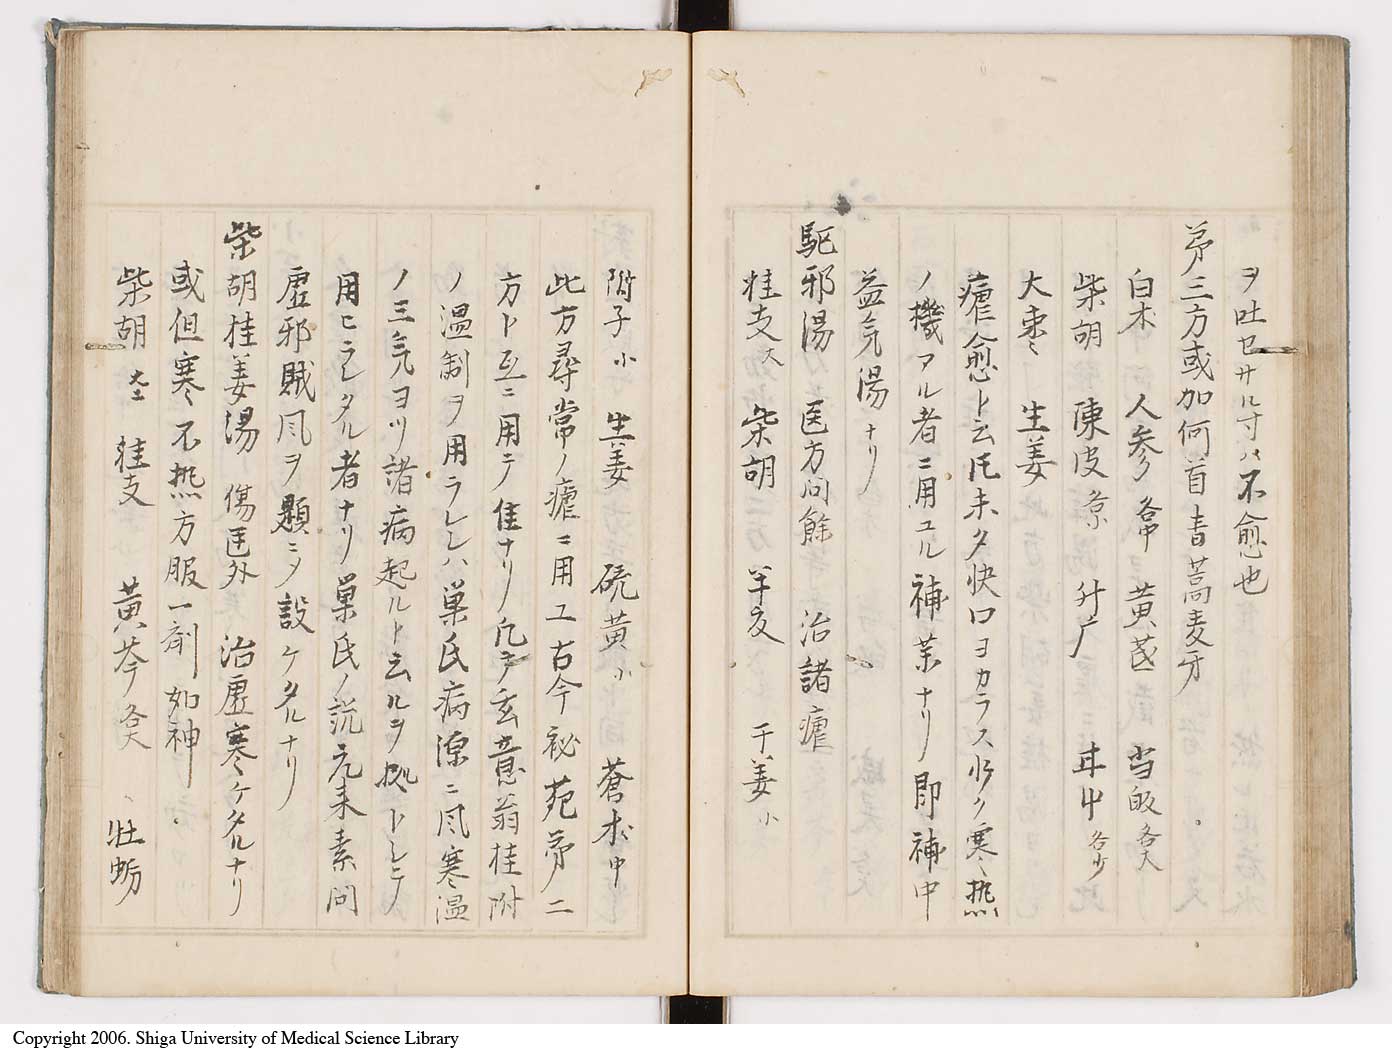 ヲ吐セサル寸ハ不愈也
第三方或加何首青蒿麦牙
白朮 人参 各中 黄茋 当皈 各大
柴胡 陳皮 升广 甘中 各少
大棗 生姜
瘧愈ト云𪜈未タ快口ヨカラス少ク寒熱
ノ機アル者ニ用ユル補薬ナリ即補中
益気湯ナリ
駆邪湯 医方問餘 治諸瘧
桂支 大 柴胡 半夏 干姜 小
附子 小 生姜 硫黄 小 蒼朮 中
此方尋常ノ瘧ニ用ユ古今秘苑第二
方ト互ニ用テ佳ナリ凡テ玄意翁桂附
ノ温剤ヲ用ラレシハ巣氏病源ニ風寒温
ノ三気ヨツ諸病起ルト云ルヲ拠トシヒテ
用ヒラレタル者ナリ巣氏ノ説元来素問
虚邪賊風ヲ題ニメ設ケタルナリ
柴胡桂姜湯 傷匡外 治虚寒ケタルナリ
或但寒不熱方服一剤如神
柴胡 大 桂支 黄芩 各大 牡蛎
Copyright 2006. Shiga University of Medical Science Library